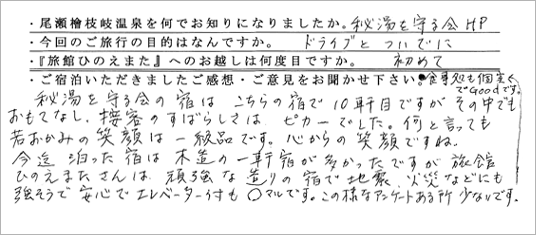 ・尾瀬檜枝岐温泉を何でお知りになりましたか。秘湯を守る会HP
・今回のご旅行の目的はなんですか。 ドライブと ついでに
・『旅館ひのえまた』へのお越しは何度目ですか。 初めて
・ご宿泊いただきましたご感想・ご意見をお聞かせ下さい。●食事処も個室で
でGoodです。
秘湯を守る会の宿は こちらの宿で10軒目ですが その中でも
おもてなし、接客のすばらしさは ピカ一でした。何と言っても
若おかみの笑顔は一級品です。心からの笑顔ですね。
今迄 泊った宿は 木造の一軒宿が多かったですが 旅館
ひのえまたさんは 頑強な造りの宿で地震、火災などにも
強そうで 安心で エレベーター付も 〇マルです。この様なアンケートある所 少ないです。